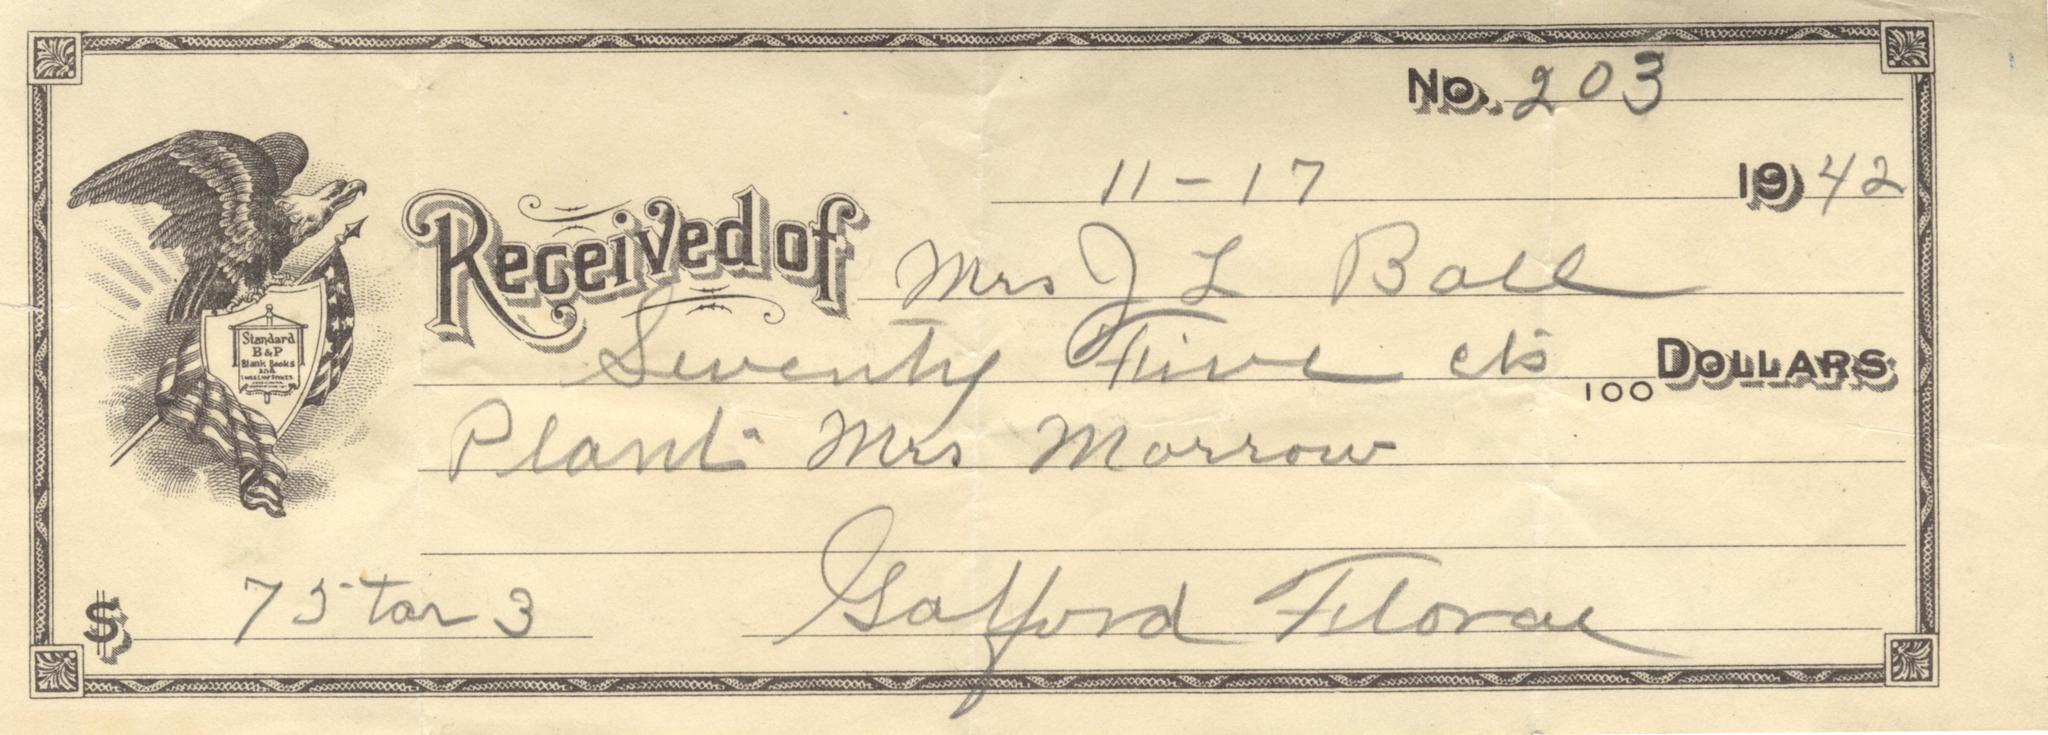 No. 203
11-17 1942
Received of Mrs J L Ball
Seventy Five cts 100 DOLLARS
Plant Mrs Morrow
$ 75 tax 3 Gafford Floral
Standard
B&P
Blank Books
and